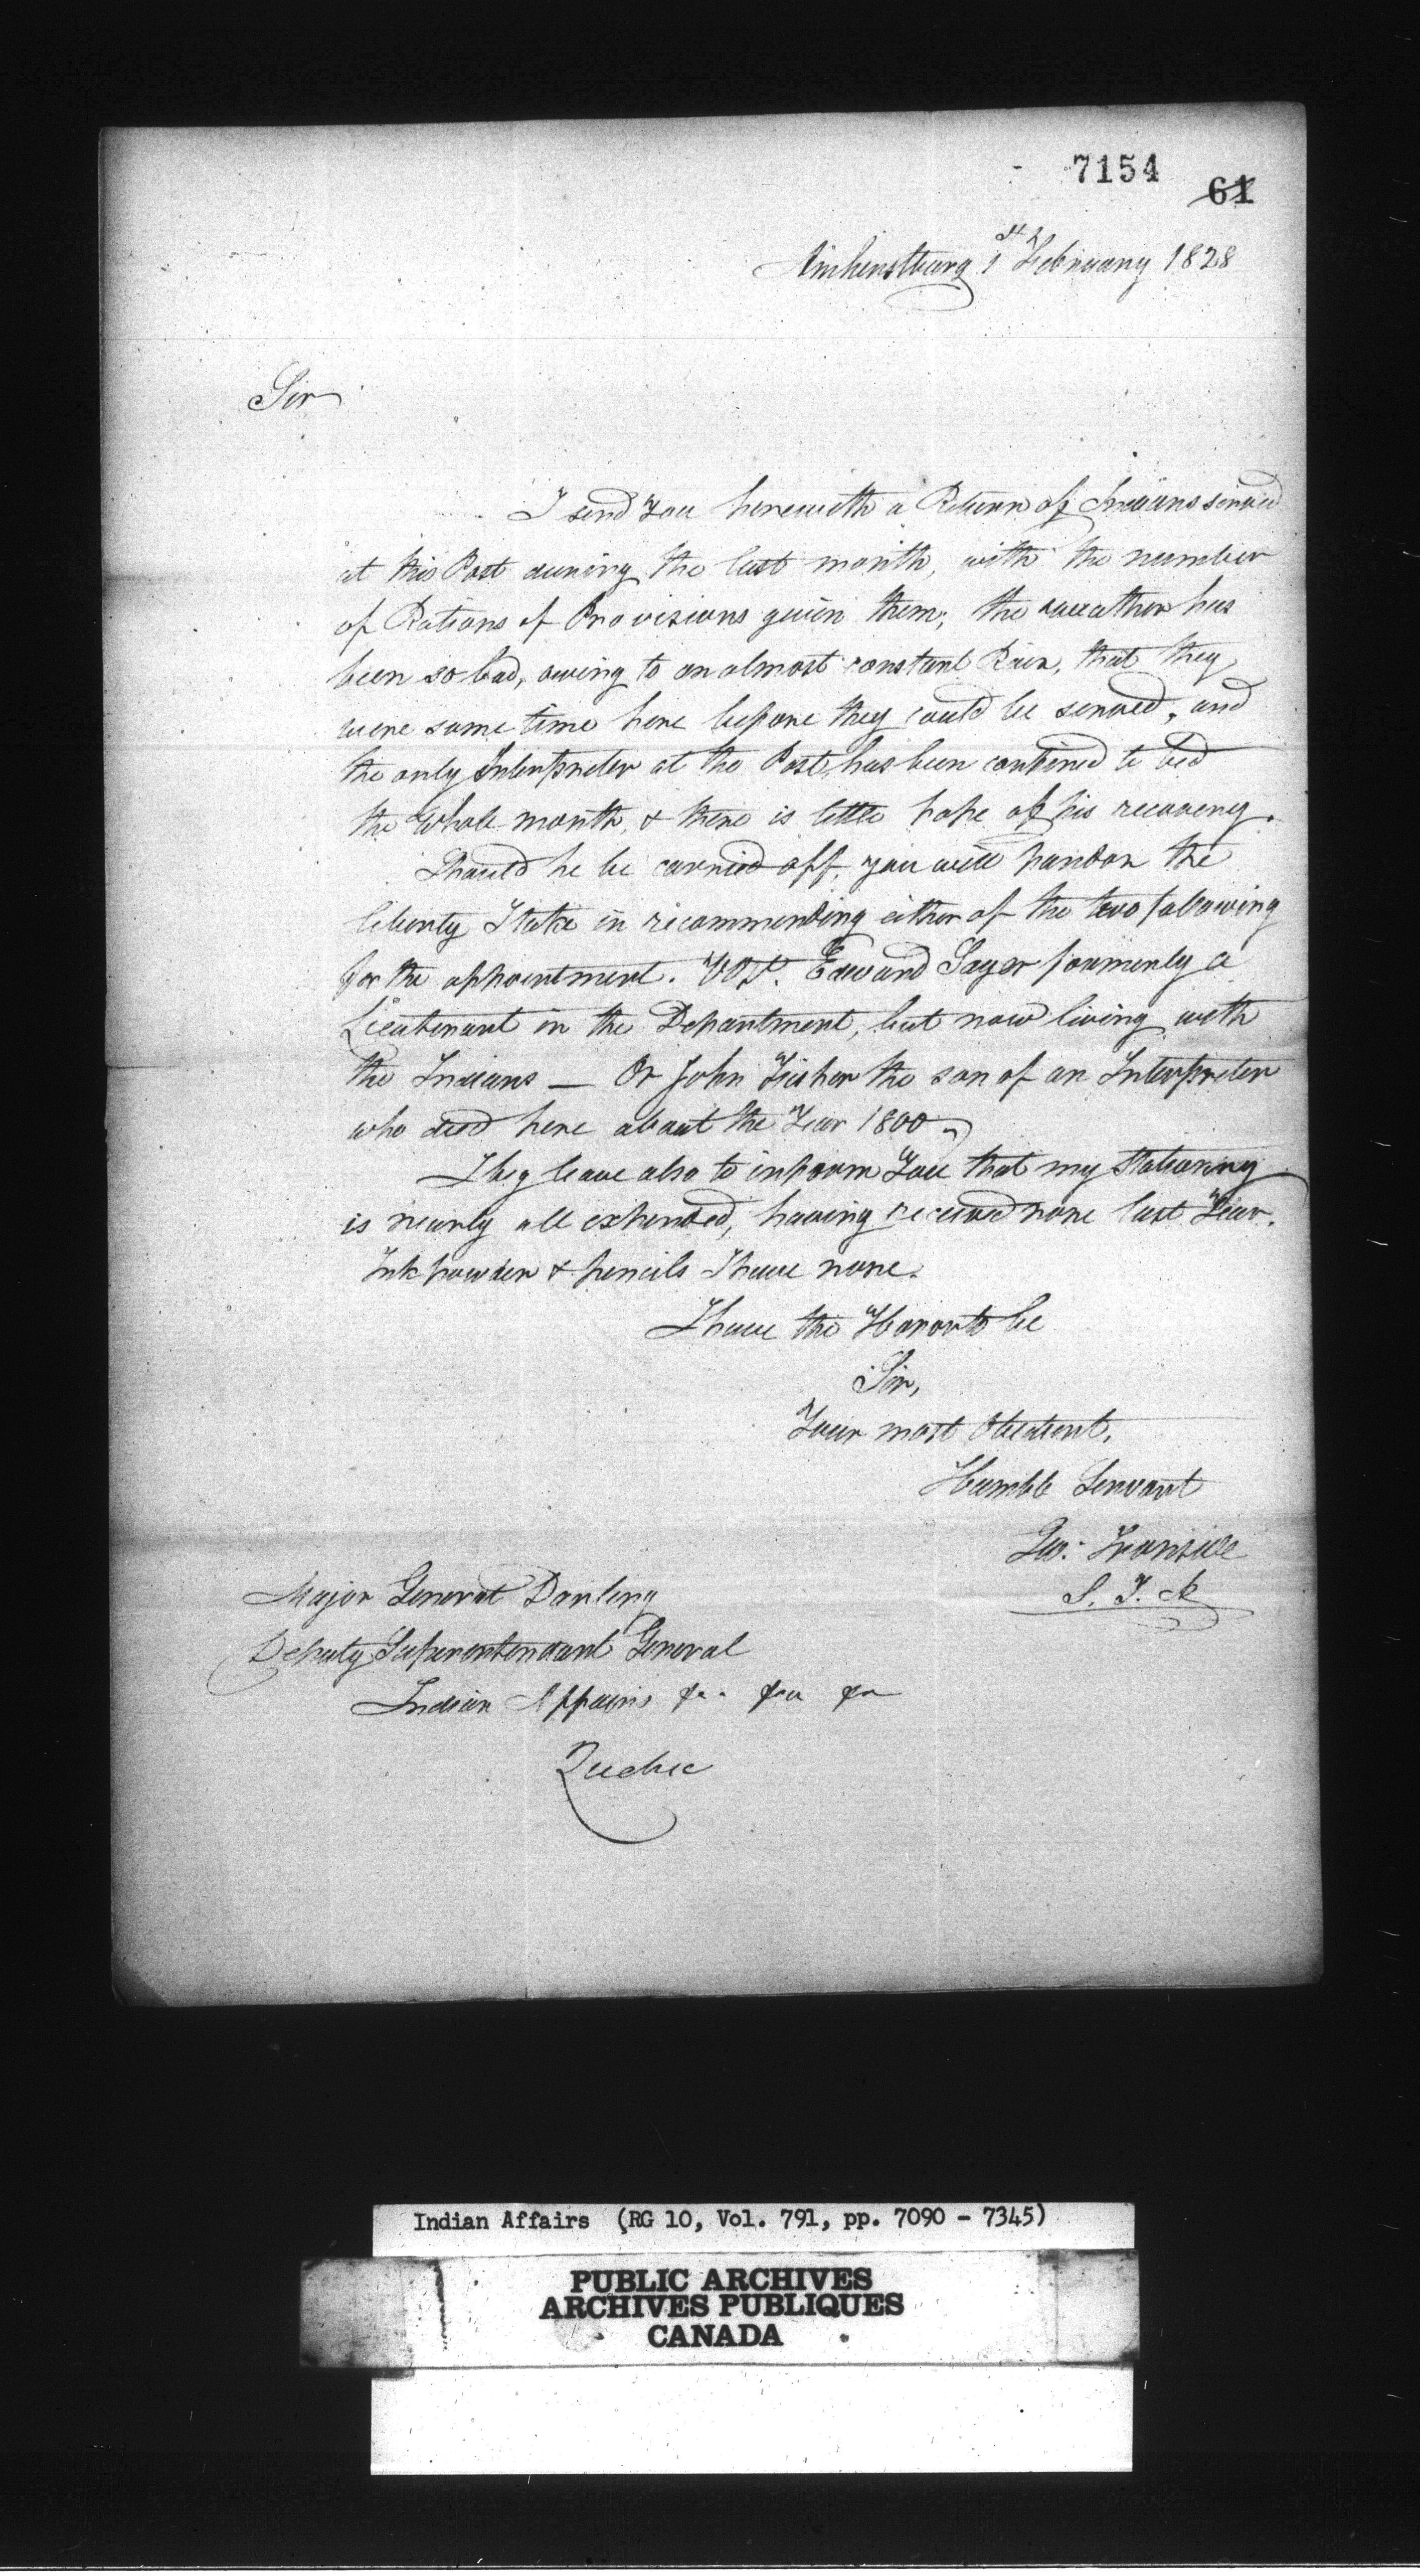 7154
61
Amherstburg 1st February 1828
Sir
I send You herewith a Return of Indians served
at this Post during the last month, with the number
of Rations of Provisions given them; the weather has
been so bad, owing to an almost constant Rain, that they
were some time here before they could be served, and
the only Interpreter at the Post, has been confined to bed
the Whole month, & there is little hope of his recovery.
Should he be carried off, you will pardon the
liberty I take in recommending either of the two following
for the appointment. Vizt. Edward Sayer formerly a
Lieutenant in the Department, but now living with
the Indians — Or John Fisher the son of an Interpreter
who died here about the Year 1800
I beg leave also to inform You that my Stationery
is nearly all expended, having received none last Year.
Ink powder & pencils I have none.
I have the Honor to be
Sir,
Your most Obedient,
Humble Servant
Geo: Ironside
S. I. A
Major General Darling
Deputy Superintendant General
Indian Affairs &c. &c &c
Quebec
Indian Affairs (RG 10, Vol. 791, pp. 7090 - 7345)
PUBLIC ARCHIVES
ARCHIVES PUBLIQUES
CANADA